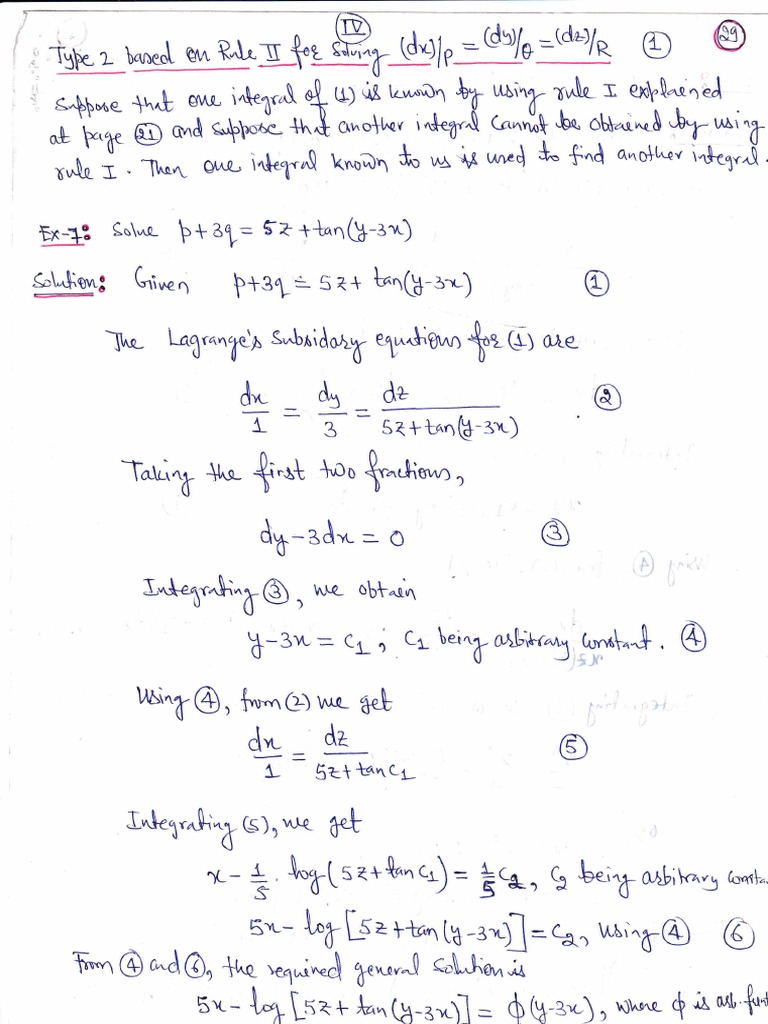 IV
29
Type 2 based on Rule II for Solving (dx)/P = (dy)/Q = (dz)/R 1
Suppose that one integral of (1) is known by using rule I explained
at page 21 and suppose that another integral cannot be obtained by using
rule I. Then one integral known to us is used to find another integral.
Ex-7: Solve p+3q = 5z + tan(y-3x)
Solution: Given p+3q = 5z + tan(y-3x) 1
The Lagrange's Subsidary equations for (1) are
dx/1 = dy/3 = dz/5z+tan(y-3x) 2
Taking the first two fractions,
dy-3dx = 0 3
Integrating 3, we obtain
y-3x = C1 ; C1 being arbitrary constant. 4
Using 4, from (2) we get
dx/1 = dz/5z+tanC1 5
Integrating (5), we get
x - 1/5 . log(5z+tan C1) = 1/5 C2, C2 being arbitrary
5x - log[5z+tan(y-3x)] = C2, Using 4 6
From 4 and 6, the required general solution is
5x - log[5z+tan(y-3x)] = φ(y-3x), where φ is arb.